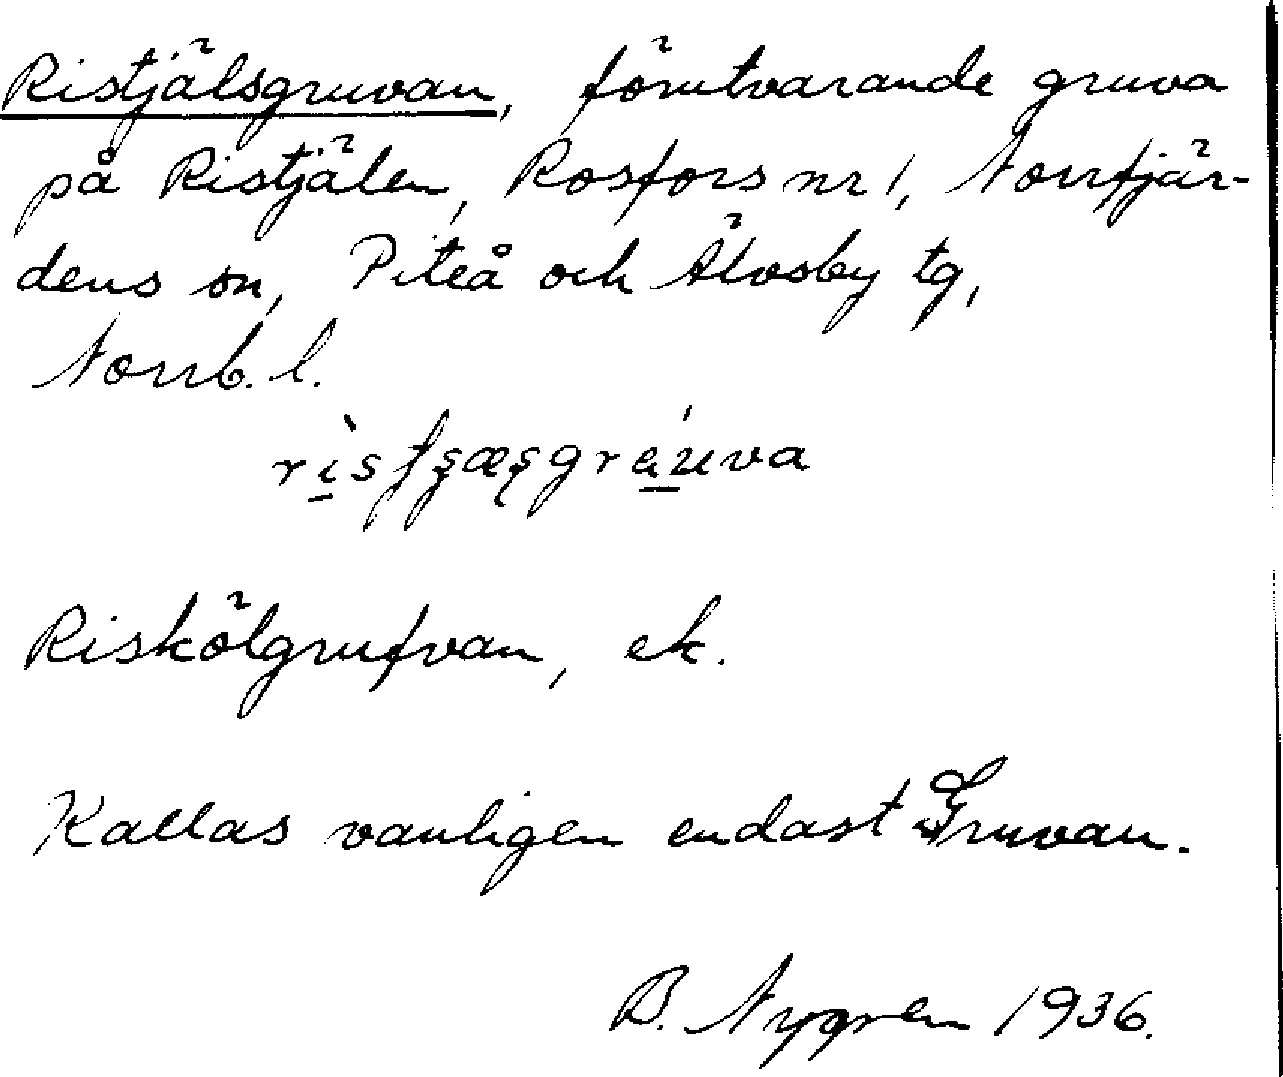 Ristjälsgruvan, förutvarande gruva
på Ristjälen, Rosfors nr 1, Norrfjär-
dens sn, Piteå och Älvsby tg,
Norrb. l.
Riskölgrufvan, ek.
Kallas vanligen endast Gruvan.
B. Nygren 1936.